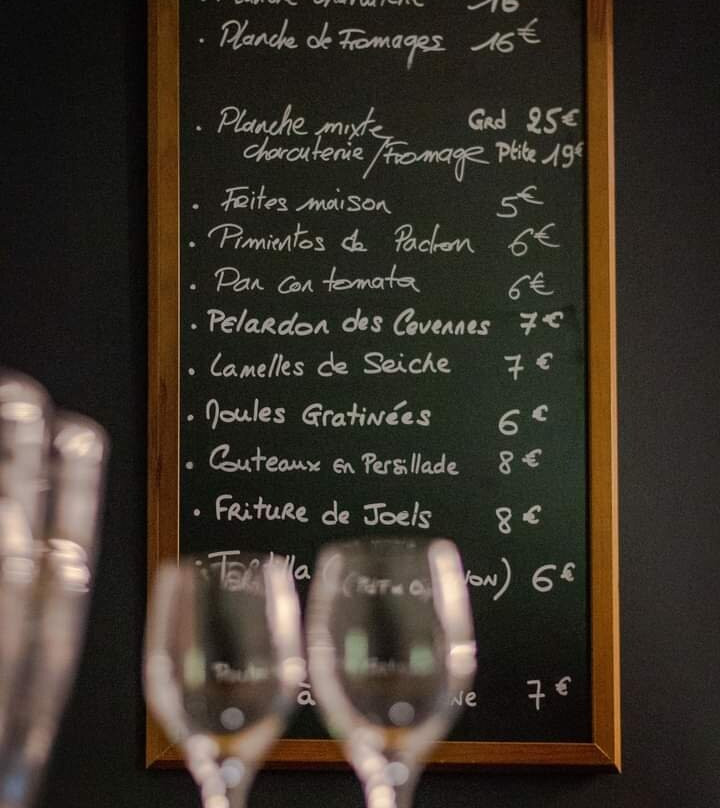 16
• Planche de Fromages 16€
• Planche mixte Grd 25€
charcuterie/Fromage Ptite 19€
• Frites maison 5€
• Pimientos de Padron 6€
• Pan con tomata 6€
• Pelardon des Cevennes 7€
• Lamelles de Seiche 7€
• Moules Gratinées 6€
• Couteaux en Persillade 8€
• Friture de Joels 8€
6€
à 7€